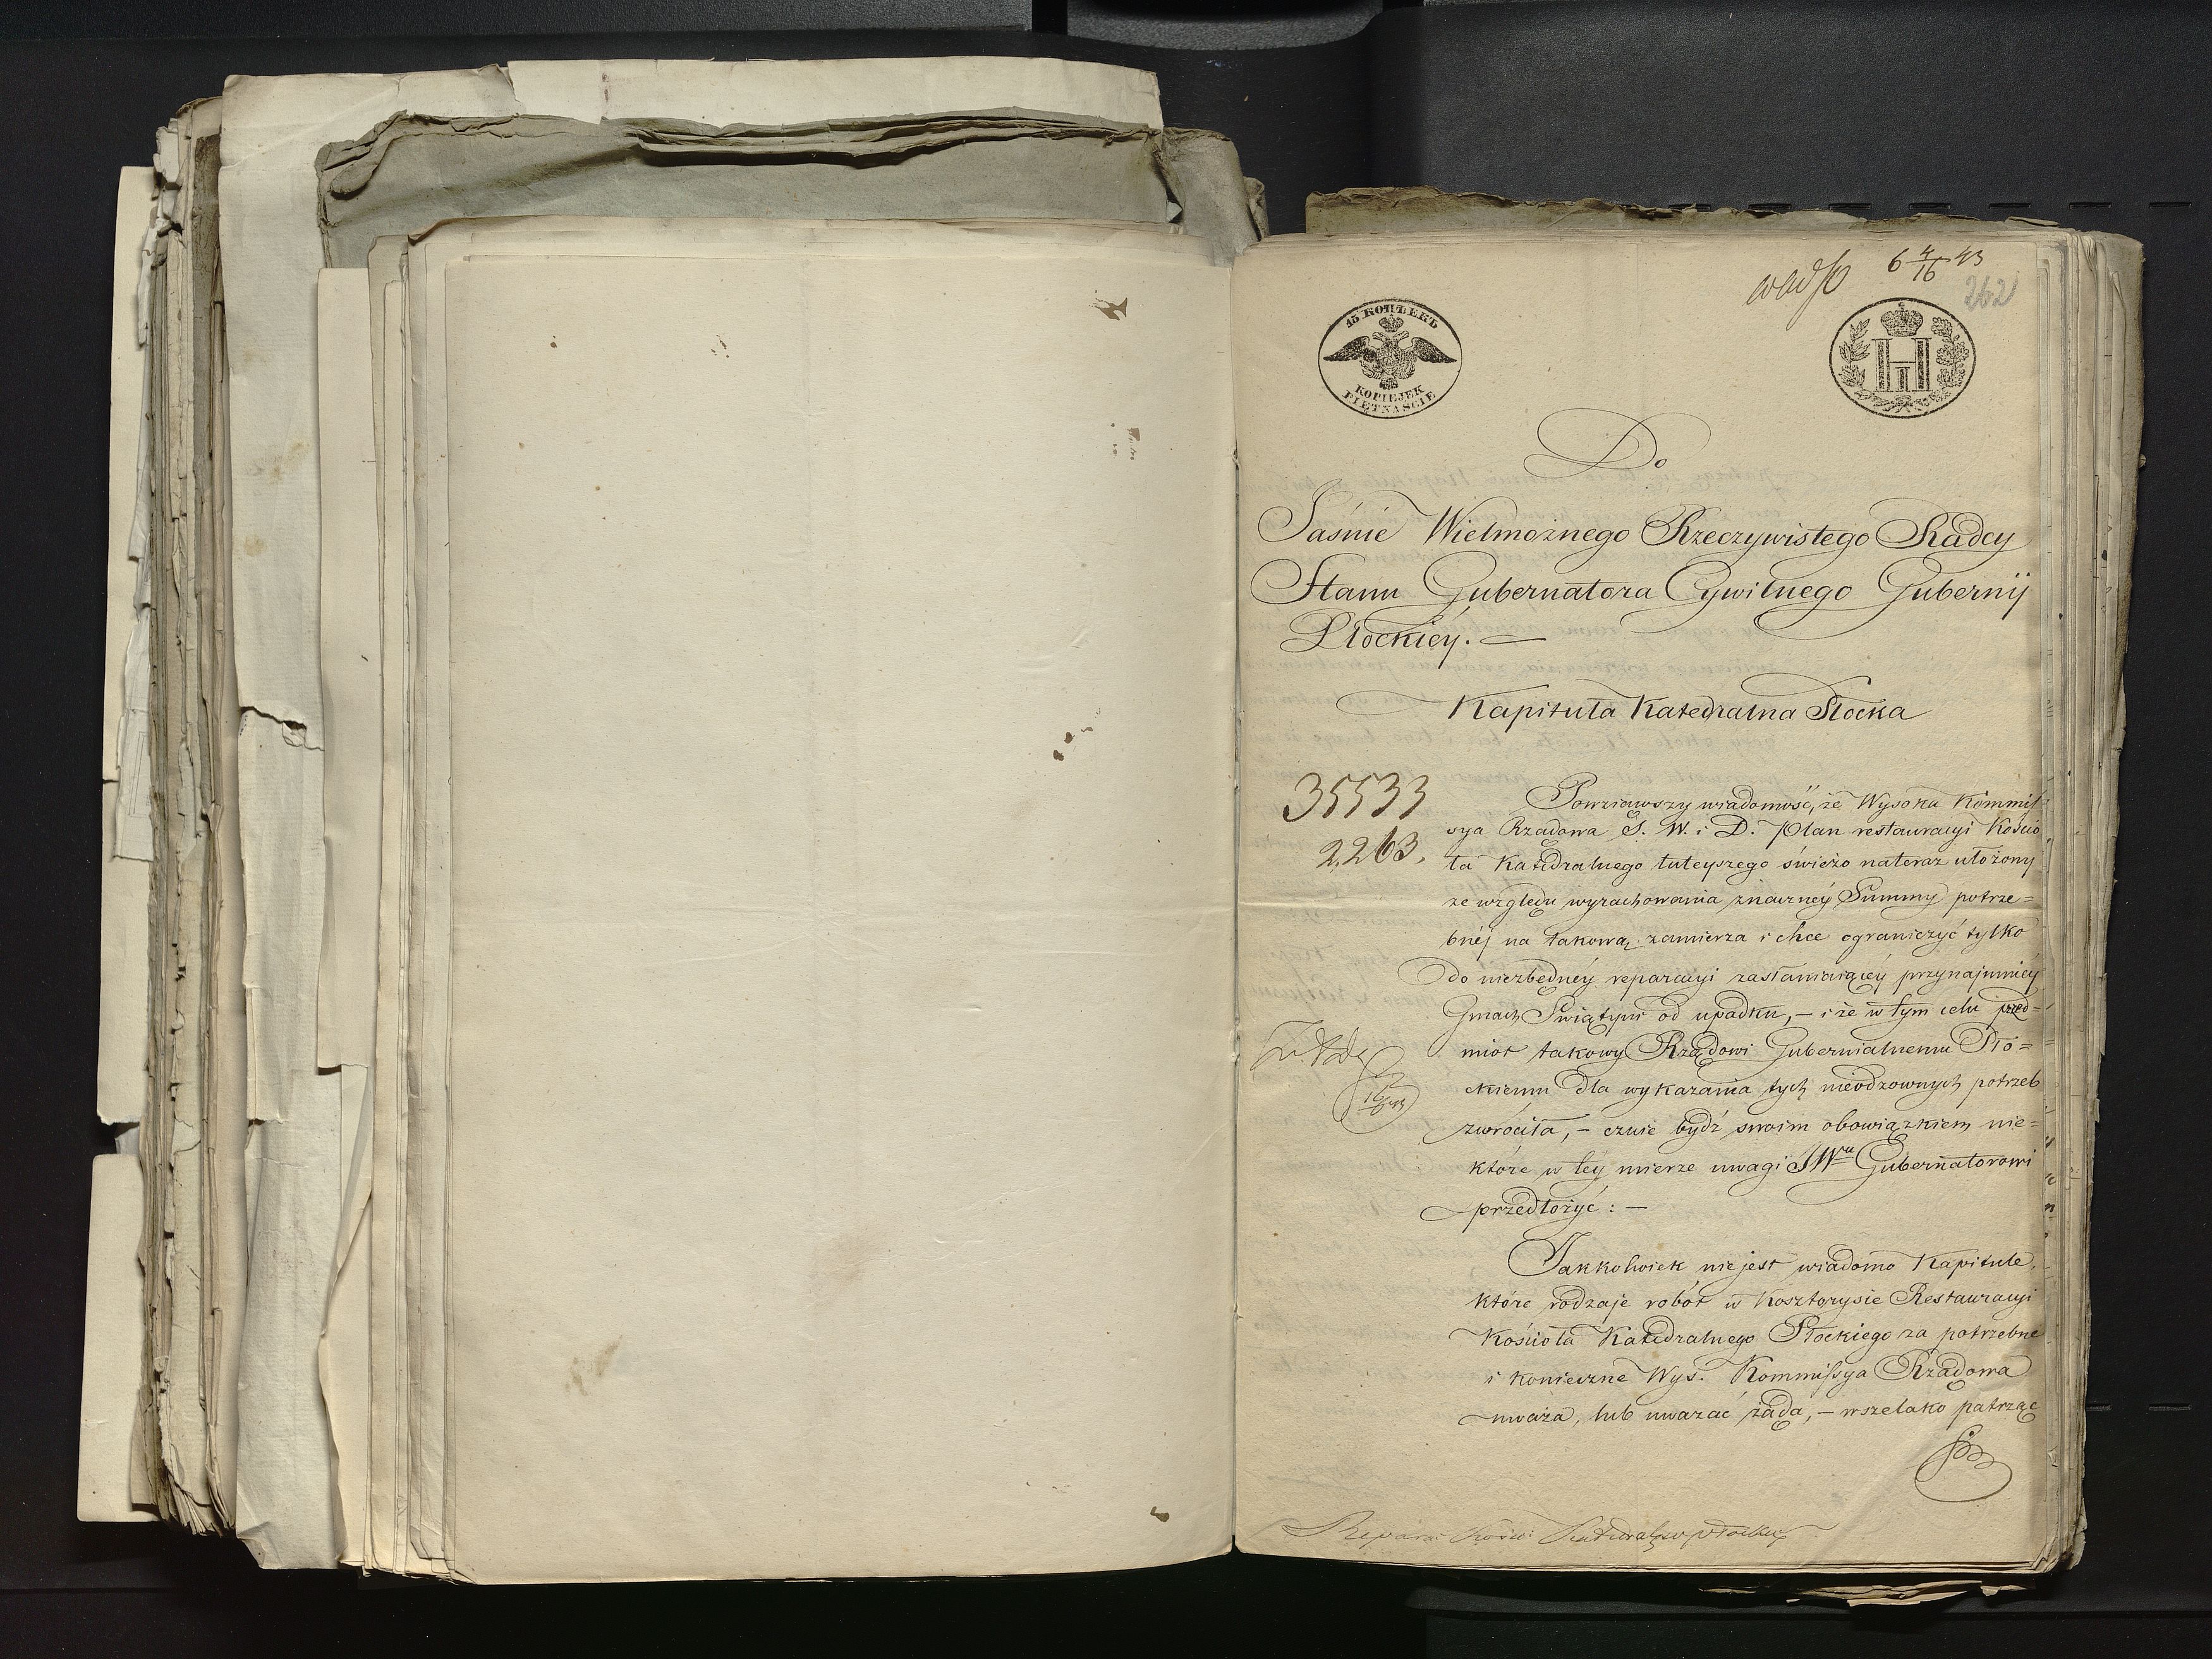 6 4/16 43
262
15 КОПѢЕКЪ
KOPIEJEK
PIĘTNAŚCIE
Н
I
Do
Jaśnie Wielmożnego Rzeczywistego Radcy
Stanu Gubernatora Cywilnego Gubernij
Płockiey. —
Kapituła Katedralna Płocka
35533
2,263.
Powziąwszy wiadomość, że Wysoka Kommis-
sya Rządowa S. W. i D. Plan restauracyi Kościo
ła Katedralnego tuteyszego świeżo nateraz ułożony
ze względu wyrachowania znaczney Summy potrze=
bnéj na takową zamierza i chce ograniczyć tylko
do niezbędnéy reparacyi zasłaniaiącéy przynajmniéy
Gmach Swiątyni od upadku, – i że w tym celu przed=
miot takowy Rządowi Gubernialnemu Pło=
ckiemu dla wykazania tych nieodzownych potrzeb
zwróciła, – czuie bydź swoim obowiązkiem nie=
które w téy mierze uwagi JWu Gubernatorowi
przedłożyć : —
Jakkolwiek nie jest wiadomo Kapitule,
które rodzaje robót w Kosztorysie Restauracyi
Kościoła Katedralnego Płockiego za potrzebne
i konieczne Wys. Kommissya Rządowa
uważa, lub uważać żąda, – wszelako patrząc